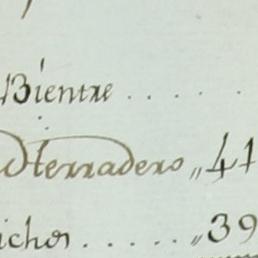 Bientre . . . .
dterradero „ 41
ichos . . . . . „ 39